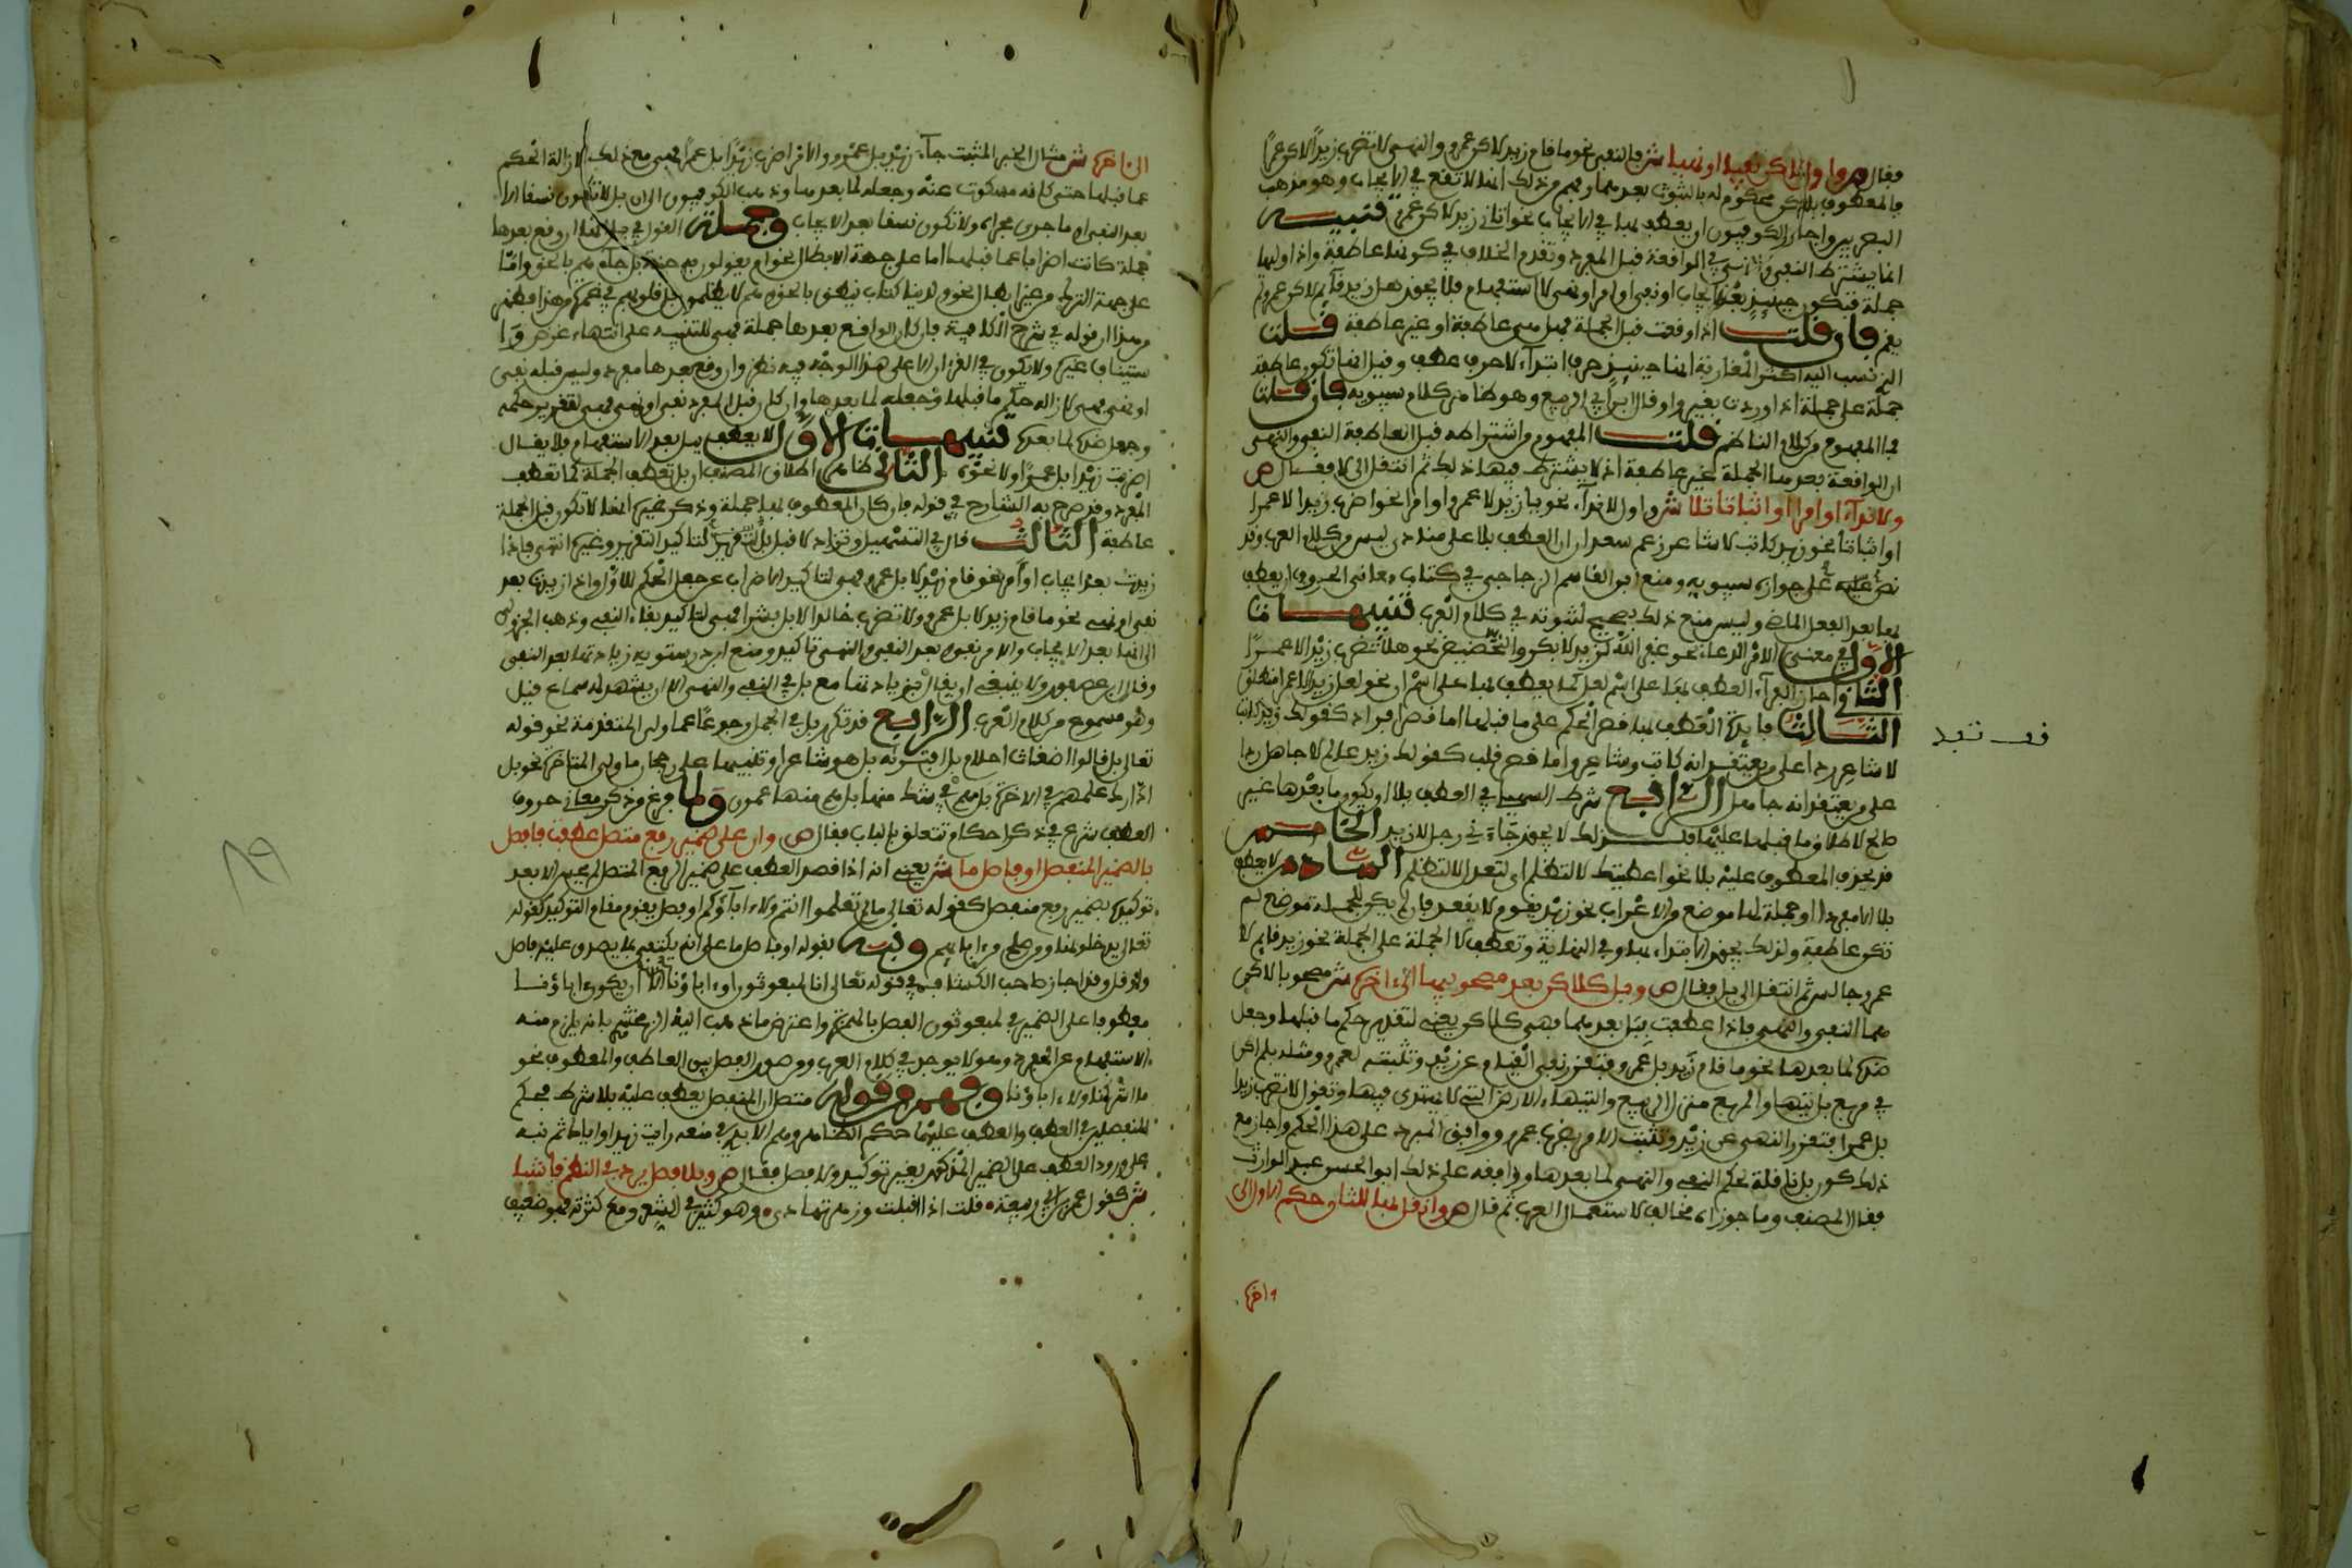 فقال ص واول لكن نفيا او نهيا ش فالنفي نحو ما قام زيد لكن عمرو والنهي لا تضرب زيدا لكن عمرا
فالمعطوف بلكن محكوم له بالثبوت بعدهما وفهم من ذلك انها لا تقع في الايجاب وهو مذهب
البصريين واجاز الكوفيون ان يعطف بها في الايجاب نحو اتاني زيد لكن عمرو تنبيه
انما يشترط النفي والنهي في الواقعة قبل المفرد وتقدم الخلاف في كونها عاطفة واذا وليها
جملة فتكون حينئذ بعد ايجاب او نفي او امر او نهي لا استفهام فلا يجوز هل زيد قائم لكن عمرو لم
يقم فان قلت اذا وقعت قبل الجملة فهل هي عاطفة او غير عاطفة قلت
الذي نسب اليه اكثر المغاربة انها حينئذ حرف ابتداء لا حرف عطف وقيل انها تكون عاطفة
جملة على جملة اذا وردت بغير واو قال ابن ابي الربيع وهو ظاهر كلام سيبويه فان قلت
فما المفهوم من كلام الناظم قلت المفهوم من اشتراطه قبل العاطفة النفي والنهي
ان الواقعة بعدها الجملة غير عاطفة اذ لا يشترط فيها ذلك ثم انتقل الى لا فقال ص
ولا نداء او امرا او اثباتا تلا ش اول لا نداء نحو يا زيد لا عمرو او امرا نحو اضرب زيدا لا عمرا
او اثباتا نحو زيد كاتب لا شاعر زعم سعدان ان العطف بلا على منادى ليس من كلام العرب وقد
نص على جوازه سيبويه ومنع ابو القاسم الزجاجي في كتاب معاني الحروف ان يعطف
بها بعد الفعل الماضي وليس منع ذلك بصحيح لثبوته في كلام العرب تنبيهات
الاول في معنى الامر الدعاء نحو غفر الله لزيد لا بكر والتحضيض نحو هلا تضرب زيدا لا عمرا
الثاني واجاز الفراء العطف بها على اسم لعل كما يعطف بها على اسم ان نحو لعل زيدا لا عمرا منطلق
الثالث فايدة العطف بها قصر الحكم على ما قبلها اما قصر افراد كقولك زيد كاتب
لا شاعر ردا على من يعتقد انه كاتب وشاعر واما قصر قلب كقولك زيد عالم لا جاهل ردا
على من يعتقد انه جاهل الرابع شرط السهيلي في العطف بلا ان يكون ما بعدها غير
صالح لاطلاق ما قبلها عليه فلذلك لا يجوز جاءني رجل لا زيد الخامس
قد يحذف المعطوف عليه بلا نحو اعطيتك لا لتظلم اي لتعدل لا لتظلم السادس لا يعطف
بلا الا مفرد او جملة لها موضع من الاعراب نحو زيد يقوم لا يقعد فان لم يكن للجملة موضع لم
تكن عاطفة ولذلك يجوز الابتداء بها وفي النهاية وتعطف لا الجملة على الجملة نحو زيد قايم لا
عمرو جالس ثم انتقل الى بل فقال ص وبل كلكن بعد مصحوبيها الى اخره ش مصحوبا لكن
هما النفي والنهي فاذا عطفت ببل بعدهما فهي كلكن يعني لتقرير حكم ما قبلها وجعل
ضده لما بعدها نحو ما قام زيد بل عمرو فتقرر نفي القيام عن زيد وتثبته لعمرو ومثله بلم اكن
في مربع بل تيها والمربع منزل الربيع والتيهاء الارض التي لا يهتدى فيها وتقول لا تضرب زيدا
بل عمرا فتقرر النهي عن زيد وتثبت الامر بضرب عمرو ووافق المبرد على هذا الحكم واجاز مع
ذلك كون بل ناقلة حكم النفي والنهي لما بعدها ووافقه على ذلك ابو الحسن عبد الوارث
فقال المصنف وما جوزاه مخالف لاستعمال العرب ثم قال ص وانقل بها للثان حكم الاول الى
واخره
الى اخره ش مثال الخبر المثبت جاء زيد بل عمرو والامر اضرب زيدا بل عمرا فهي مع ذلك لازالة الحكم
عما قبلها حتى كانه مسكوت عنه وجعله لما بعدها وذهب الكوفيون الى ان بل لا تكون نسقا الا
بعد النفي او ما جرى مجراه ولا تكون نسقا بعد الايجاب وجملة القول في بل انها ان وقع بعدها
جملة كانت اضرابا عما قبلها اما على جهة الابطال نحو ام يقولون به جنة بل جاءهم بالحق واما
على جهة الترك من غير ابطال نحو ولدينا كتاب ينطق بالحق وهم لا يظلمون بل قلوبهم في غمرة من هذا فظهر
من هذا ان قوله في شرح الكافية فان كان الواقع بعدها جملة فهي للتنبيه على انتهاء غرض وا
ستيناف غيره ولا يكون في القران الا على هذا الوجه فيه نظر وان وقع بعدها مفرد وليس قبله نفي
او نهي فهي لازالة حكم ما قبلها وجعله لما بعدها وان كان قبل المفرد نفي او نهي فهي لتقرير حكمه
وجعل ضده لما بعدها تنبيهات الاول لا يعطف ببل بعد الاستفهام فلا يقال
اضربت زيدا بل عمرا ولا نحوه الثاني ظاهر اطلاق المصنف ان بل تعطف الجملة كما تعطف
المفرد وقد صرح به الشارح في قوله فان كان المعطوف بها جملة وذكر غيره انها لا تكون قبل الجملة
عاطفة الثالث قال في التسهيل وتزاد لا قبل بل لتاكيد التقرير وغيره انتهى فاذا
زيدت بعد ايجاب او امر نحو قام زيد لا بل عمرو فهو لتاكيد الاضراب عن جعل الحكم للاول واذا زيدت بعد
نفي او نهي نحو ما قام زيد لا بل عمرو ولا تضرب خالدا لا بل بشرا فهي لتاكيد بقاء النفي وذهب الجزولي
الى انها بعد الايجاب والامر نفي وبعد النفي والنهي تاكيد ومنع ابن درستويه زيادتها بعد النفي
وقال ابن عصفور ولا ينبغي ان يقال بزيادتها مع بل في النفي والنهي الا ان يشهد له سماع قيل
وهو مسموع من كلام العرب الرابع قد تكرر بل في الجمل رجوعا عما ولي المتقدمة نحو قوله
تعالى بل قالوا اضغاث احلام بل افتراه بل هو شاعر او تنبيها على رجحان ما ولي المتاخرة نحو بل
ادارك علمهم في الاخرة بل هم في شك منها بل هم منها عمون ولما فرغ من ذكر معاني حروف
العطف شرع في ذكر احكام تتعلق بالباب فقال ص وان على ضمير رفع متصل عطفت فافصل
بالضمير المنفصل او فاصل ما ش يعني انه اذا قصد العطف على ضمير الرفع المتصل لم يحسن الا بعد
توكيده بضمير رفع منفصل كقوله تعالى ما لم تعلموا انتم ولا اباؤكم او فصل يقوم مقام التوكيد كقوله
تعالى يدخلونها ومن صلح من ابايهم ونبه بقوله او فاصل ما على انه يكتفي بما يصدق عليه فاصل
ولو قل وقد اجاز صاحب الكشاف في قوله تعالى انا لمبعوثون او اباؤنا ان يكون اباؤنا
معطوفا على الضمير في لمبعوثون للفصل بالهمزة واعترض ما ذهب اليه الزمخشري بانه يلزم منه
الاستفهام عن المفرد وهو لا يوجد في كلام العرب ومن صور الفصل بين العاطف والمعطوف نحو
ما اشركنا ولا اباؤنا وفهم من قوله متصل ان المنفصل يعطف عليه بلا شرط فحكم
المنفصل في العطف والعطف عليه حكم الظاهر ووهم الابدي في منعه رايت زيدا واياك ثم نبه
على ورود العطف على الضمير المذكور بغير توكيد ولا فصل فقال ص وبلا فصل يرد في النظم فاشيا
ش كقول عمر بن ابي ربيعة قلت اذ اقبلت وزهر تهادى وهو كثير في الشعر ومع كثرته فهو ضعيف